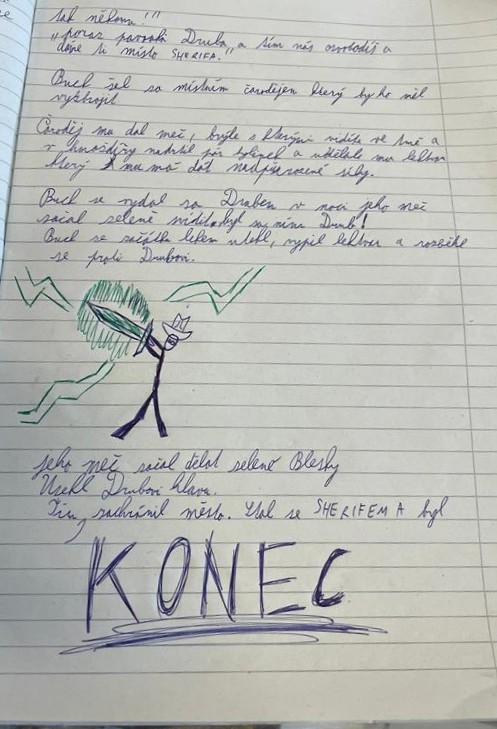 tak někomu!"
„poraz parazita Druba, a tím nás osvobodíš a
dáme ti místo SHERIFA."
Buch šel za místním čarodějem který by ho měl
vyzbrojit
Čaroděj mu dal meč, brýle s kterými vidíte ve tmě a
v hmoždíři nadrtil pár bylinek a udělal mu lektvar
který mu má dát nadpřirozené síly.
Buch se vydal za Drubem v noci jeho meč
začal zeleně byl Drub!
Buch se začátku lekem utekl, vypil lektvar a rozběhl
se proti Drubovi.
Jeho meč začal dělat zelené Blesky
Usekl Drubovi hlavu.
Tím zachránil město. Stal se SHERIFEM A byl
KONEC